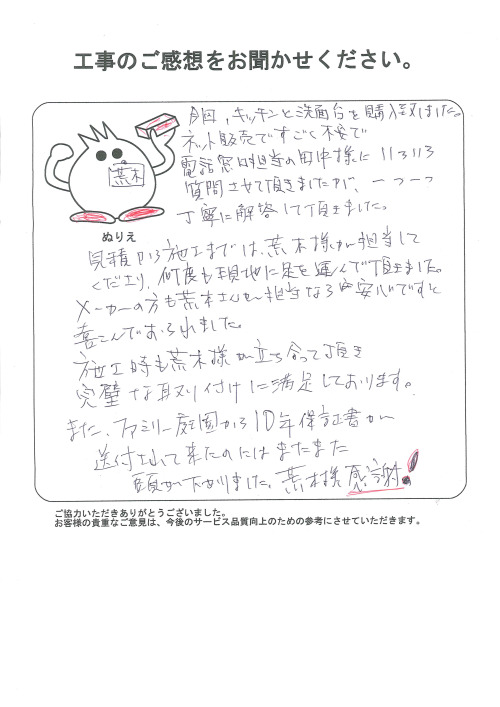 工事のご感想をお聞かせください。
荒木
ぬりえ
今回、キッチンと洗面台を購入致しました。
ネット販売ですごく不安で
電話窓口担当の田中様にいろいろ
質問させて頂きましたが、一つ一つ
丁寧に解答して頂きました。
見積から施工までは、荒木様が担当して
くださり、何度も現地に足を運んで頂きました。
メーカーの方も荒木さんが担当なら安心ですと
喜こんでおられました。
施工時も荒木様が立ち合って頂き
完璧な取り付けに満足しております。
また、ファミリー庭園から10年保証書が
送付されて来たのにはまたまた
頭が下がりました。荒木様感謝!
ご協力いただきありがとうございました。
お客様の貴重なご意見は、今後のサービス品質向上のための参考にさせていただきます。